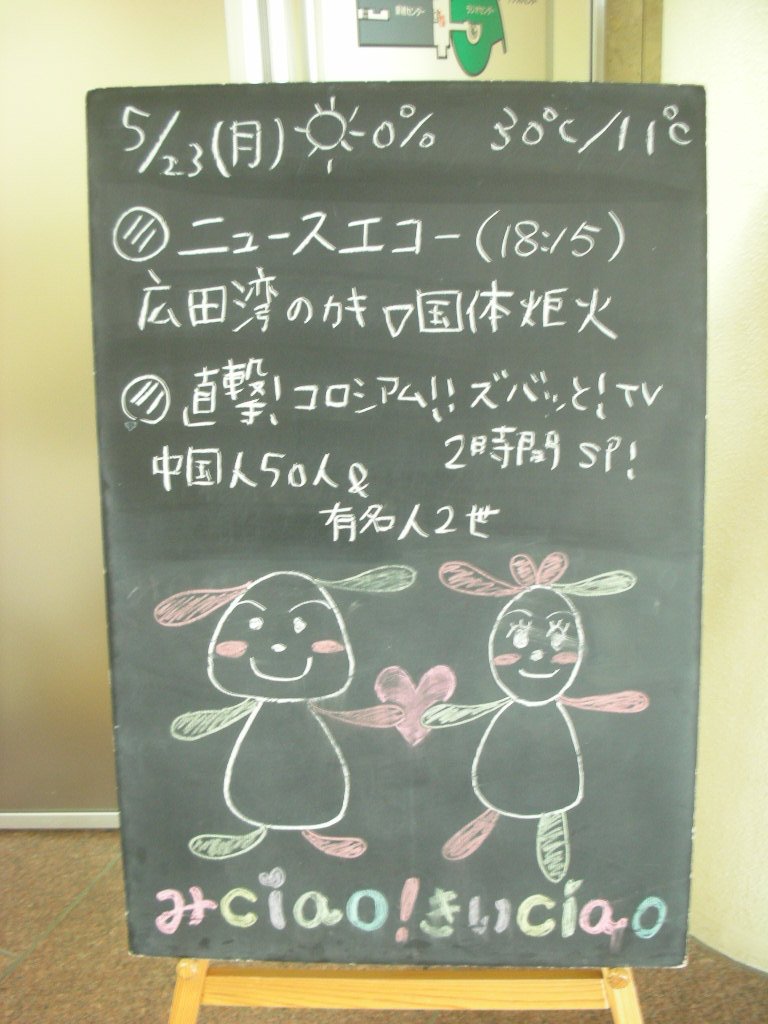 ラジオセンター
5/23(月) 0% 30℃/11℃
ニュースエコー(18:15)
広田湾のカキ▽国体炬火
直撃!コロシアム!!ズバッと!TV
2時間SP!
中国人50人&
有名人2世
みciao!きいciao